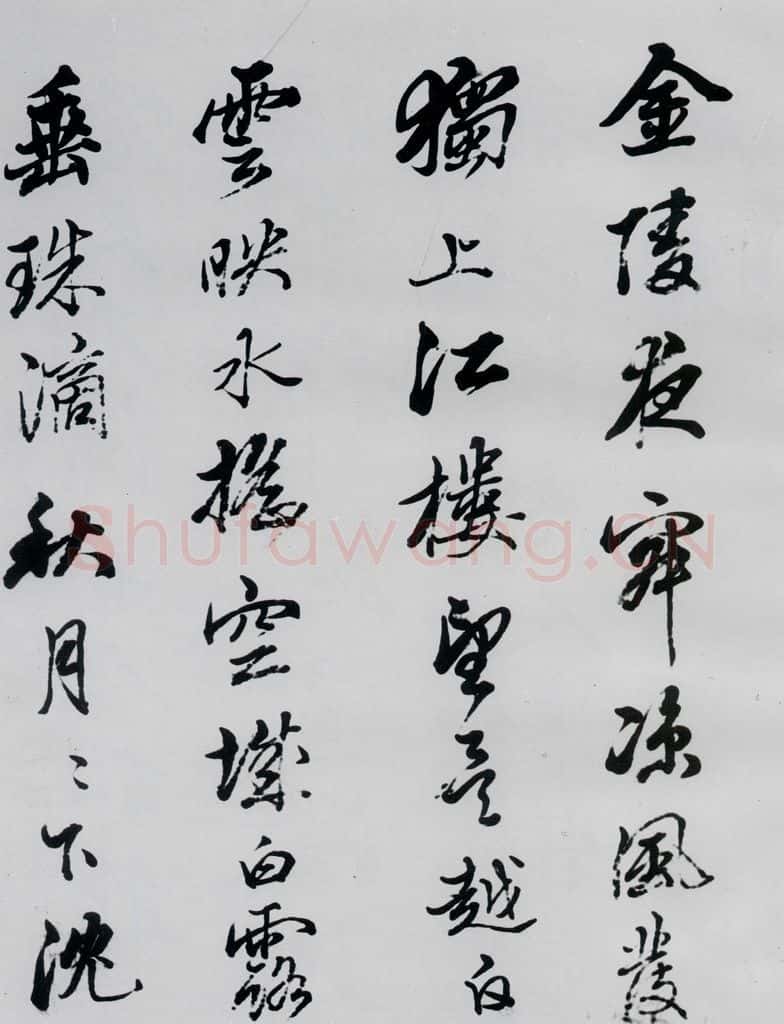 金陵夜寂凉風發
獨上江樓望吳越白
雲映水搖空城白露
垂珠滴秋月〻下沈
Shufawang.CN